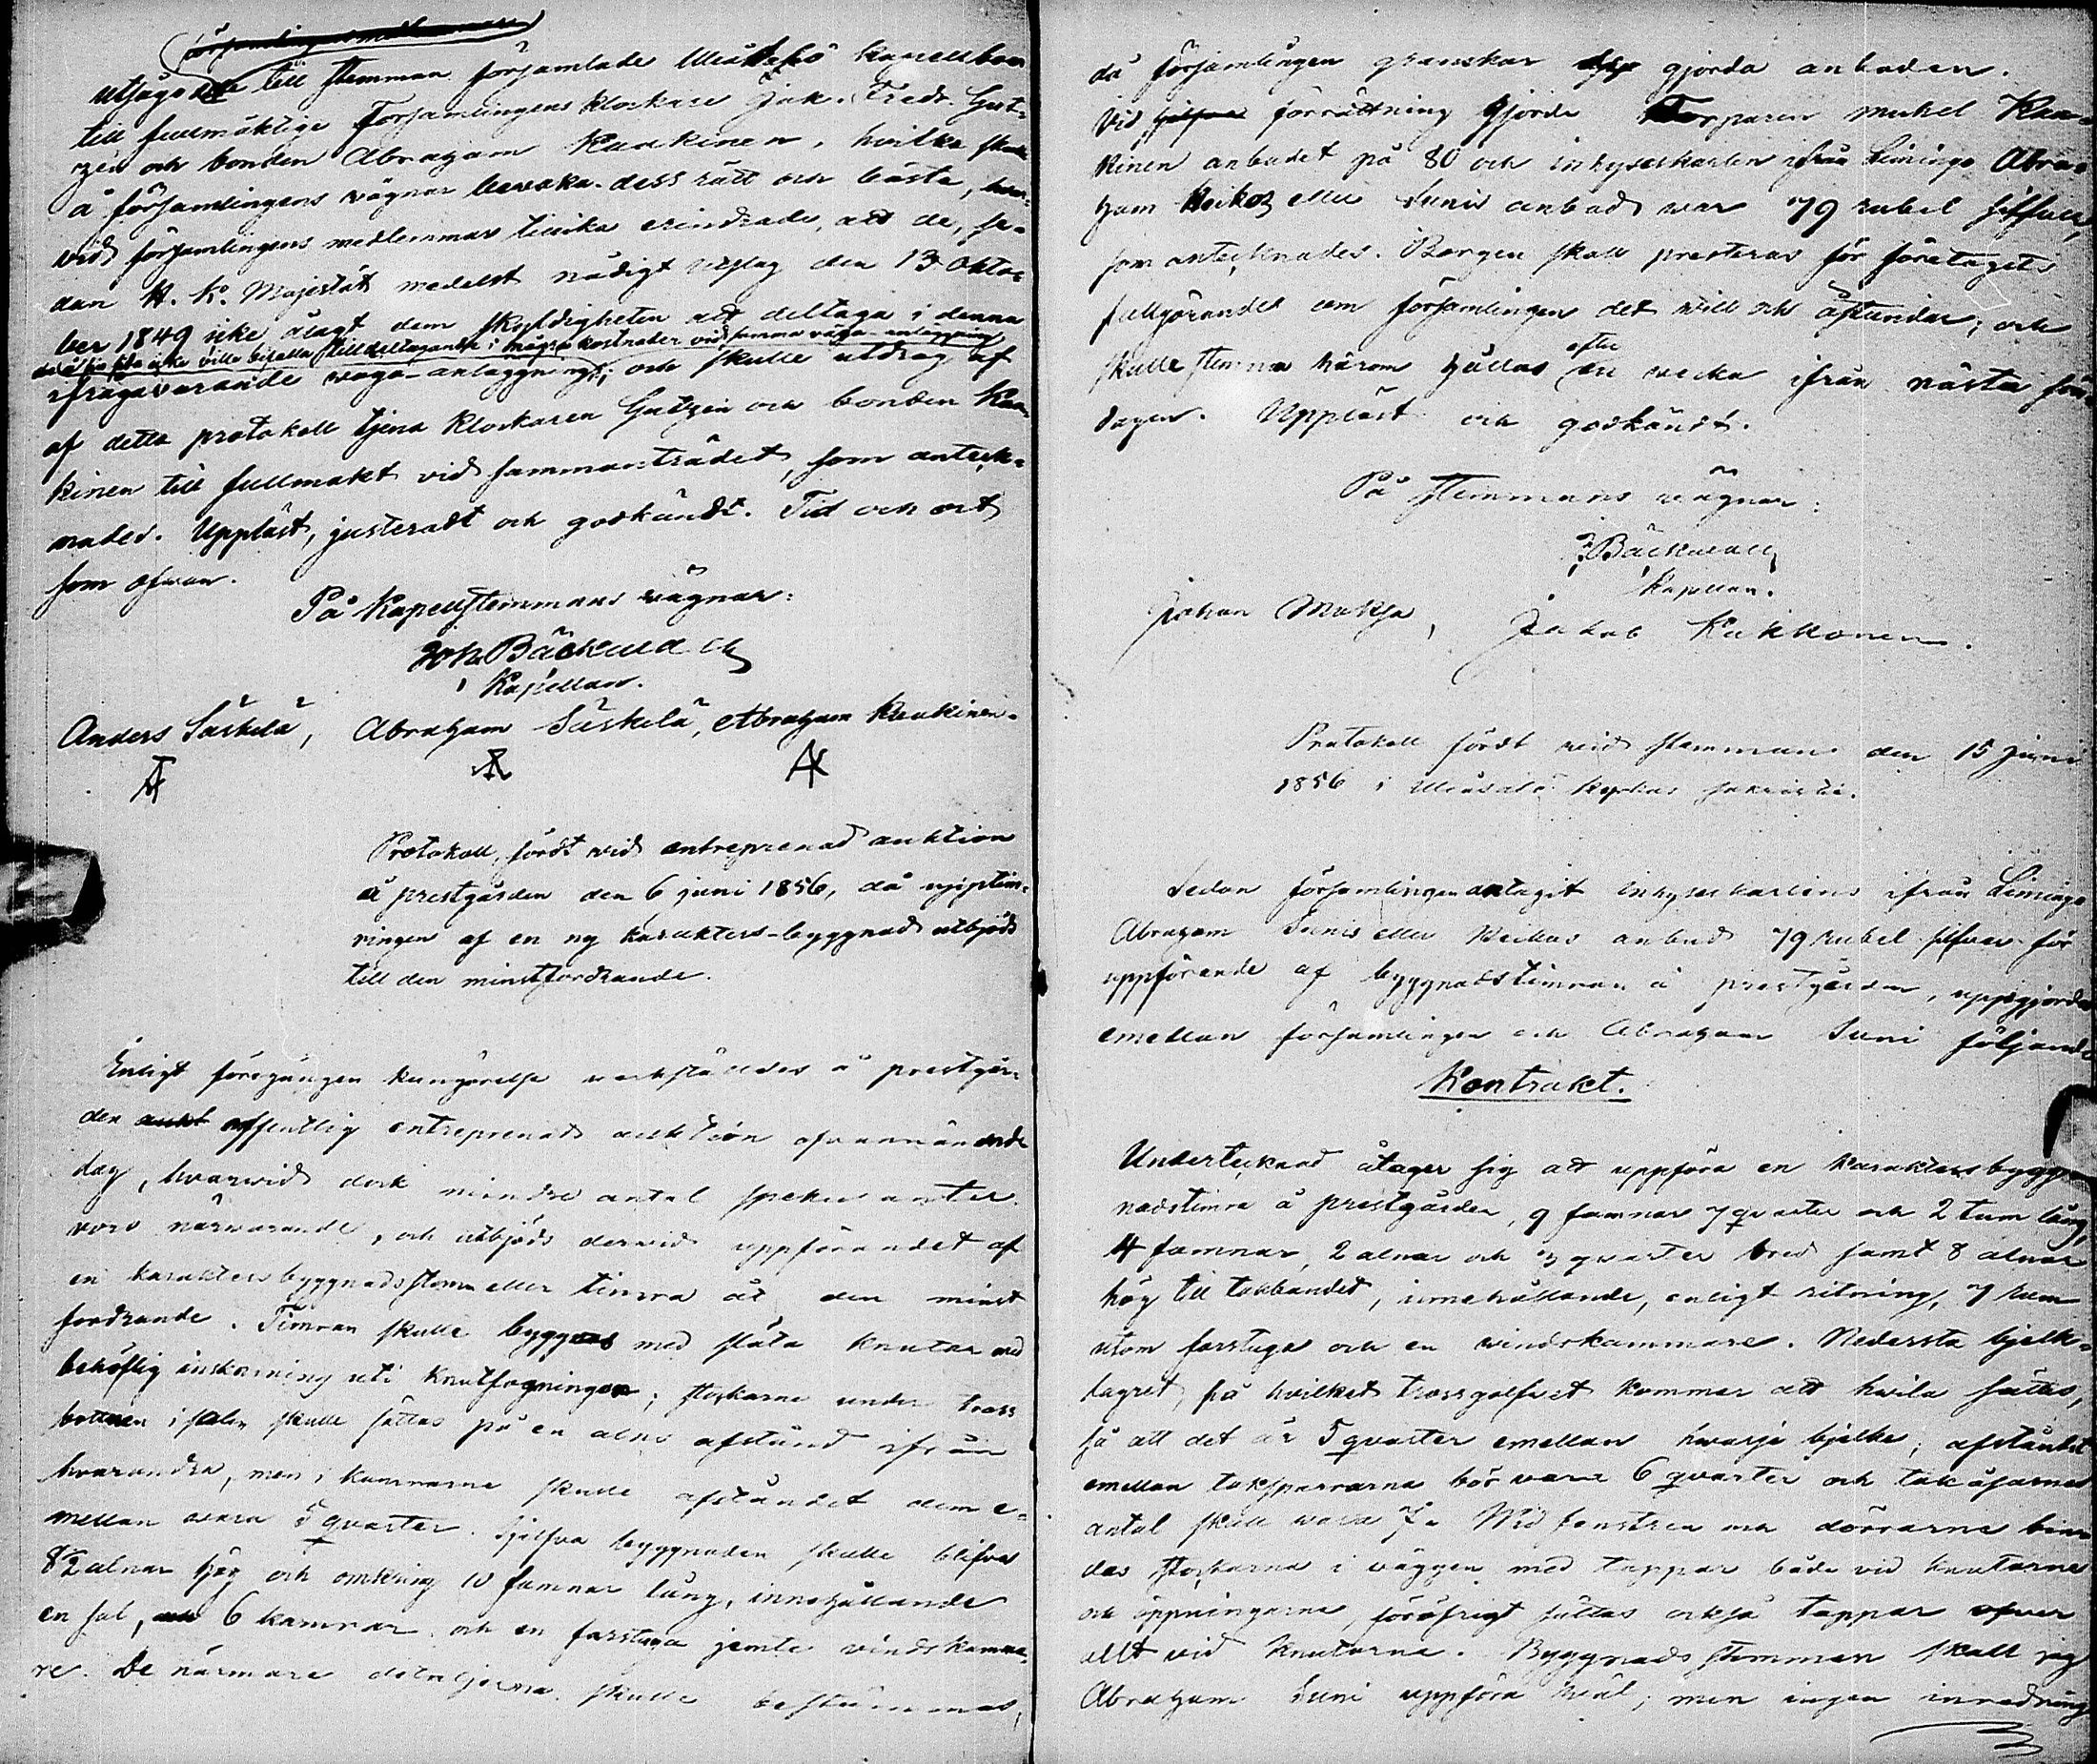 församlingsmedlemmare
utsågo de till stemman församlade kapellboer
till fullmäktige Församlingens klockare Jak. Fredr. Gut-
zén och bonden Abraham Kaukinen, hvilka skola
å församlingens vägnar bevaka dess rätt och bästa, hvar-
vid församlingens medlemmar tillika erindrade, att de, se-
dan H. K. Majestät medelst nådigt utslag den 13 Okto-
ber 1849 icke ålagt dem skyldigheten att deltaga i denna
icke ville bifalla till deltagande i några kostnader vid samma väga-anläggning
ifrågavarande väga-anläggning; och skulle utdrag af
af detta protokoll tjena klockaren Gutzén och bonden Kau-
kinen till fullmakt vid sammanträdet, som anteck-
nades. Uppläst, justeradt och godkändt. Tid och ort
som ofvan.
På Kapellstemmans vägnar:
Joh. Bäckvall
Kapellan.
Anders Säskelä, Abraham Säskelä, Abraham Kaukinen.
Protokoll, fördt vid entreprenad auktion
å prestgården den 6 juni 1856, då upptim-
ringen af en ny karakters-byggnad utbjöds
till den minstfordrande.
Enligt föregången kungörelse verkställdes å prestgår-
den aukt offentlig entreprenads auktion ofvannämnde
dag, hvarvid dock mindre antal spekulanter
voro närvarande, och utbjöds dervid uppförandet af
en karaktersbyggnadsstomm eller timra åt den minst
fordrande. Timran skulle byggas med släta knutar med
behöflig inskärning uti knutfogningen; stockarne under tross
bottnen i salen skulle sättas på en alns afstånd ifrån
hvarandra, men i kamrarne skulle afståndet dem e-
mellan vara 5 qvarter. Sjelfva byggnaden skulle blifva
8½ alnar hög och omkring 10 famnar lång, innehållande
en sal, 6 kamrar och en farstuga jemte vindskamma-
re. De närmare detaljerna skulle bestämmas,
då församlingen granskar gjorda anbuden.
Vid förrättning gjorde Torparen Mickel Kau-
kinen anbudet på 80 och inhyseskarlen ifrån Liminge Abra-
ham Keikoz eller Sunis anbud var 79 rubel silfver,
som antecknades. Borgen skall presteras för företagets
fullgörandet om församlingen det vill och åstundar; och
skulle stemma härom hållas efter en vecka ifrån nästa sön-
dagen. Uppläst och godkändt.
På Stemmans vägnar:
J. Bäckvall
Kapellan.
Johan Muksa, Jakob Kukkonen.
Protokoll fördt vid stemman den 15 juni
1856 i kyrkas sakristi.
Sedan församlingen antagit inhyseskarlens ifrån Liminge
Abraham Sunis eller Keikos anbud 79 rubel silfver för
uppförande af byggnadstimran å prestgården, uppgjordes
emellan församlingen och Abraham Suni följande
Kontrakt.
Undertecknad åtager sig att uppföra en karaktersbygg-
nadstimra å prestgården, 9 famnar 7 qvarter och 2 tum lång,
4 famnar, 2 alnar och 3 qvarter bred samt 8 alnar
hög till takbandet, innehållande, enligt ritning, 7 rum
utom farstuga och en vindskammare. Nedersta bjelk-
lagret, på hvilket trossgolfvet kommer att hvila sättes,
så att det är 5 qvarter emellan hvarje bjelke; afståndet
emellan taksparrarna bör vara 6 qvarter och takåsarnes
antal skall vara 7. Vid fenstren och dörrarne bin-
das stockarna i väggen med tappar både vid knutarne
och öppningarne, föröfrigt sättas också tappar öfver
allt vid knutarne. Byggnadsstomman skall jag
Abraham Suni uppföra väl; men ingen inredning